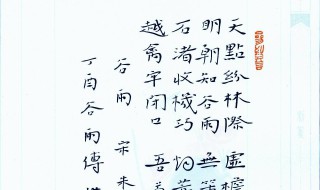 天點紛林際 虛檐
明朝知谷雨 無
石渚收機巧
越禽牢閉口 吾
谷雨 宋 朱
丁酉谷雨傅